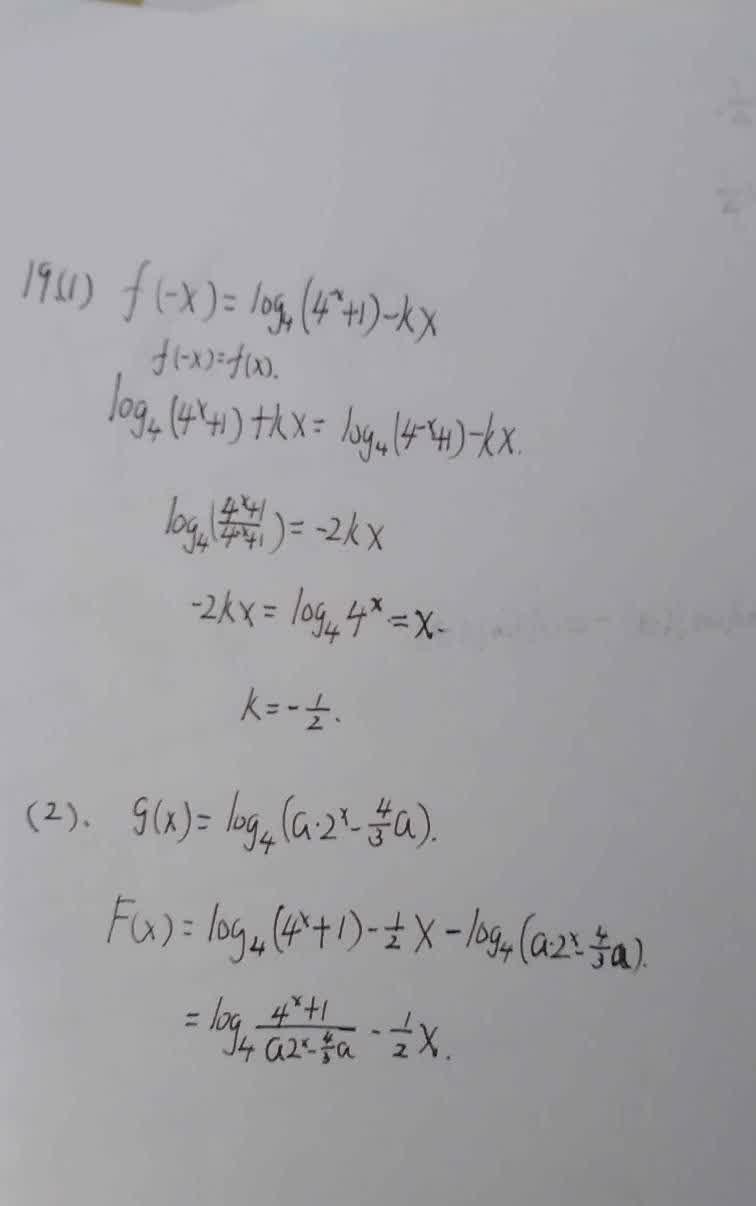 19.(1) f(-x)=log₄(4⁻ˣ+1)-kx
f(-x)=f(x).
log₄(4ˣ+1)+kx=log₄(4⁻ˣ+1)-kx.
log₄(\frac{4ˣ+1}{4⁻ˣ+1})=-2kx
-2kx=log₄4ˣ=x.
k=-\frac{1}{2}.
(2). g(x)=log₄(a·2ˣ-\frac{4}{3}a).
F(x)=log₄(4ˣ+1)-\frac{1}{2}x-log₄(a·2ˣ-\frac{4}{3}a).
=log₄\frac{4ˣ+1}{a2ˣ-\frac{4}{3}a}-\frac{1}{2}x.